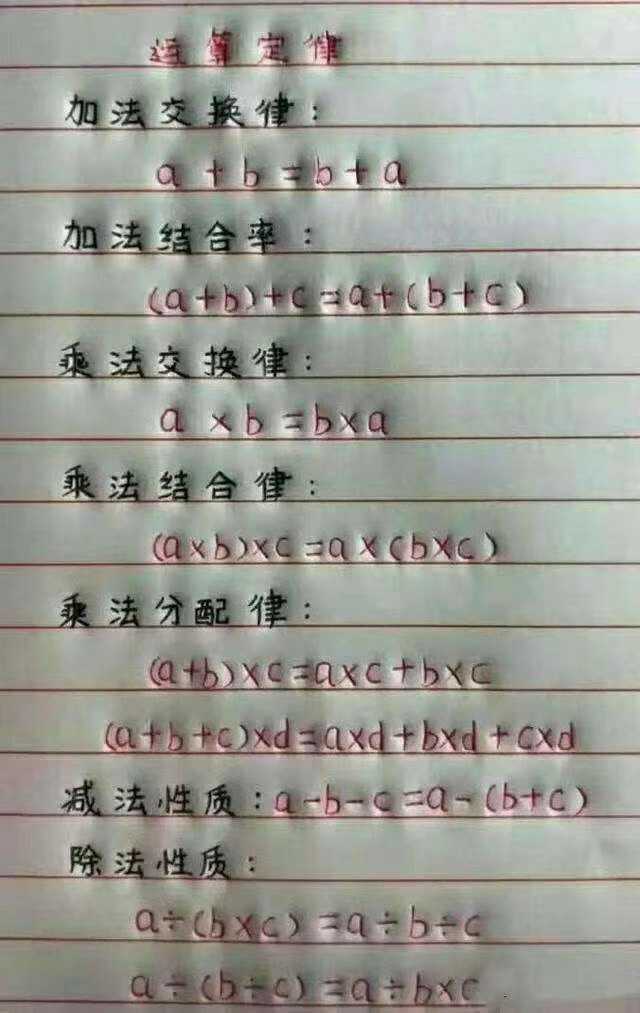 运算定律
加法交换律:
a+b=b+a
加法结合率:
(a+b)+c=a+(b+c)
乘法交换律:
a×b=b×a
乘法结合律:
(a×b)×c=a×(b×c)
乘法分配律:
(a+b)×c=a×c+b×c
(a+b+c)×d=a×d+b×d+c×d
减法性质:a-b-c=a-(b+c)
除法性质:
a÷(b×c)=a÷b÷c
a÷(b÷c)=a÷b×c